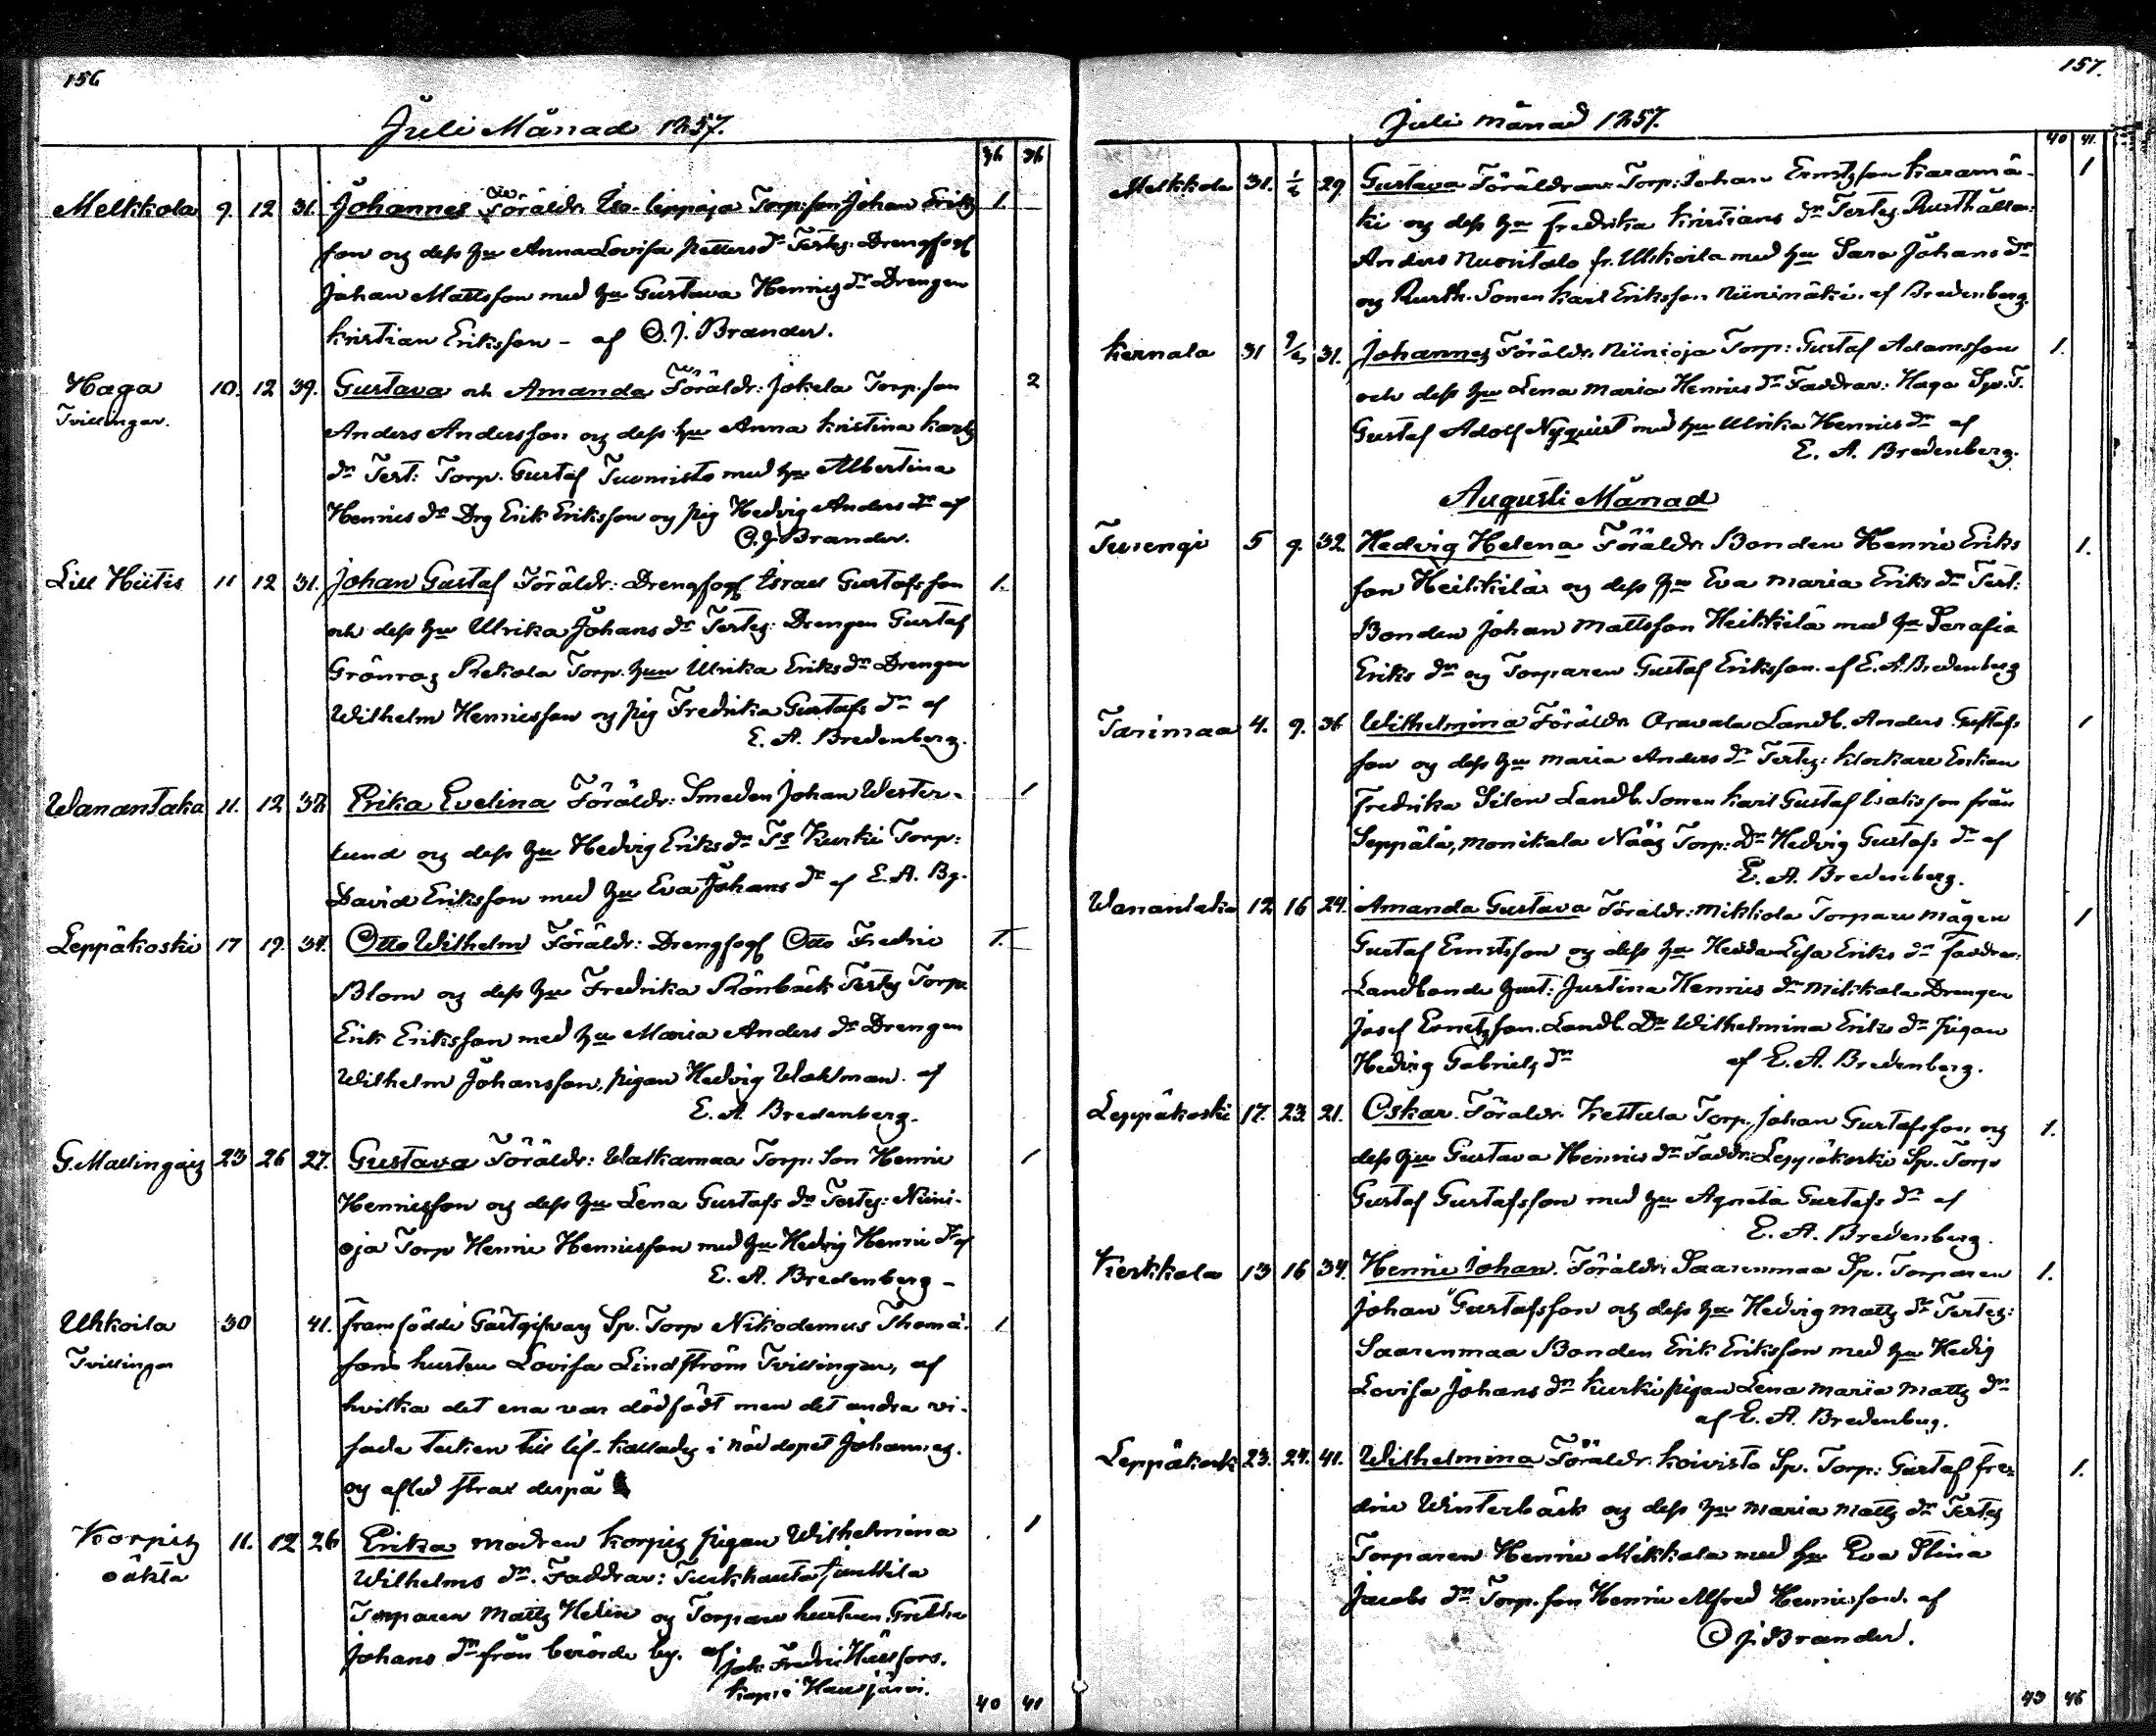 156
Juli Månad 1857.
36 36
Melkkola 9. 12 31. Johannes Föräldr. Iso-leppoja Torp: son Johan Eriks 1.
son og dess hu Anna Lovisa Petters dr Testes: Drengfogf
Johan Mattsson med hu Gustava Henrics dr Drengen
Kristian Eriksson - af O. J. Brander.
Haga 10. 12 39. Gustava och Amanda Föräldr: Jokela Torp. son 2
Tvillingar. Anders Andersson og dess hu Anna Kristina Karls
dr Test: Torp. Gustaf Tuomisto med hu Albertina
Henrics dr Drg Erik Eriksson og pig Hedvig Anders dr af
O. J. Brander.
Lill Hiitis 11 12 31. Johan Gustaf Föräldr: Drengfogf Israel Gustafsson 1.
och dess hu Ulrika Johans dr Testes: Drengen Gustaf
Grönroos Rekola Torp. hun Ulrika Eriks dr Drengen
Wilhelm Henricsson og pig Fredrika Gustafs dr af
E. A. Bredenberg.
Wanantaka 11. 12 Erika Evelina Föräldr: Smeden Johan Wester- 1
lund og dess hu Hedvig Eriks dr Ts Kurki Torp:
David Eriksson med hu Eva Johans dr af E. A. Bg.
Leppäkoski 17 19. 34. Otto Wilhelm Föräldr: Drengfogf Otto Fredric 1.
Blom og dess hu Fredrika Rönbäck Testes Torp.
Erik Eriksson med hu Maria Anders dr Drengen
Wilhelm Johansson, pigan Hedvig Wahlman. af
E. A. Bredenberg.
G. Mallingais 23 26 27. Gustava Föräldr: Walkamaa Torp: Son Henric 1
Henricsson og dess hu Lena Gustafs dr Testes: Niini-
oja Torp Henric Henricsson med hu Hedvig Henric dr af
E. A. Bredenberg -
Uhkoila 30 41. framfödde Gästgifvars Sp. Torp Nikodemus Thomæ- 1
Tvillingar sons hustru Lovisa Lindström Tvillingar, af
hvilka det ena var dödfödt men det andra vi-
sade tecken till lif - kallades i nöddopet Johannes.
og afled strax derpå
Korpis 11. 12 26 Erika modren Korpis pigan Wilhelmina 1
oäkta Wilhelms dr. Faddrar: Turkhauta Junttila
Torparen Matts Helin og Torpare hustrun Gretha
Johans dr från berörde by. af Joh. Fredric Hällfors.
kapel: Hausjärvi.
40 41
157.
Juli månad 1857.
40 41.
Melkkola 31. 1/8 29 Gustava Föräldrar: Torp: Johan Ernstsson Haramä- 1
ki og dess hu Fredrika Kristians dr Testes. Rusthållar:
Anders Nuoritalo fr. Uhkoila med hu Sara Johans dr
og Rusth. Sonen Karl Eriksson Niinimäki. af Bredenberg.
Kernala 31 2/8 31. Johannes Föräldr. Niinioja Torp: Gustaf Adamsson 1.
och dess hu Lena Maria Henrics dr Faddrar: Haga Sp. T.
Gustaf Adolf Nyquist med hu Ulrika Henrics dr af
E. A. Bredenberg.
Augusti Månad
Turengi 5 9. 32 Hedvig Helena Föräldr: Bonden Henric Eriks 1.
son Heikkilä og dess hu Eva Maria Eriks dr Test:
Bonden Johan Mattsson Heikkilä med hu Serafia
Eriks dr og Torparen Gustaf Eriksson. af E. A. Bredenberg
Tarimaa 4. 9. 36 Wilhelmina Föräldr Oravala Landb. Anders Gustafs 1
son og dess hu Maria Anders dr Testes: Klockare Enkan
Fredrika Silen Landb. Sonen Karl Gustaf Isaksson från
Seppälä, Monikala Nääs Torp: Dr Hedvig Gustafs dr af
E. A. Bredenberg.
Wanantaka 12 16 24. Amanda Gustava Föräldr: Mikkola Torpare mågen 1
Gustaf Ernstsson og dess hu Hedda Lisa Eriks dr faddrar:
Landbonde hust: Justina Henrics dr Mikkola Drengen
Josef Ernstsson. Landb. Dr Wilhelmina Eriks dr pigan
Hedvig Gabriels dr af E. A. Bredenberg.
Leppäkoski 17. 23. 21. Oskar. Föräldr. Kettula Torp. Johan Gustafsson og 1.
dess hu Gustava Henrics dr Faddr: Leppäkoski Sp. Torp
Gustaf Gustafsson med hu Agneta Gustafs dr af
E. A. Bredenberg.
Kerkkola 13 16 34. Henric Johan. Föräldr: Saarenmaa Sp. Torparen 1.
Johan Gustafsson og dess hu Hedvig Matts dr Testes:
Saarenmaa Bonden Erik Eriksson med hu Hedvig
Lovisa Johans dr Kurki pigan Lena Maria Matts dr
af E. A. Bredenberg.
Leppäkosk 23. 24. 41. Wilhelmina Föräldr. Koivisto Sp. Torp: Gustaf Fre- 1.
dric Winterbäck og dess hu Maria Matts dr Testes
Torparen Henric Mikkola med hu Eva Stina
Jacobs dr Torp. son Henric Alfred Henricsson. af
O J. Brander.
43 46